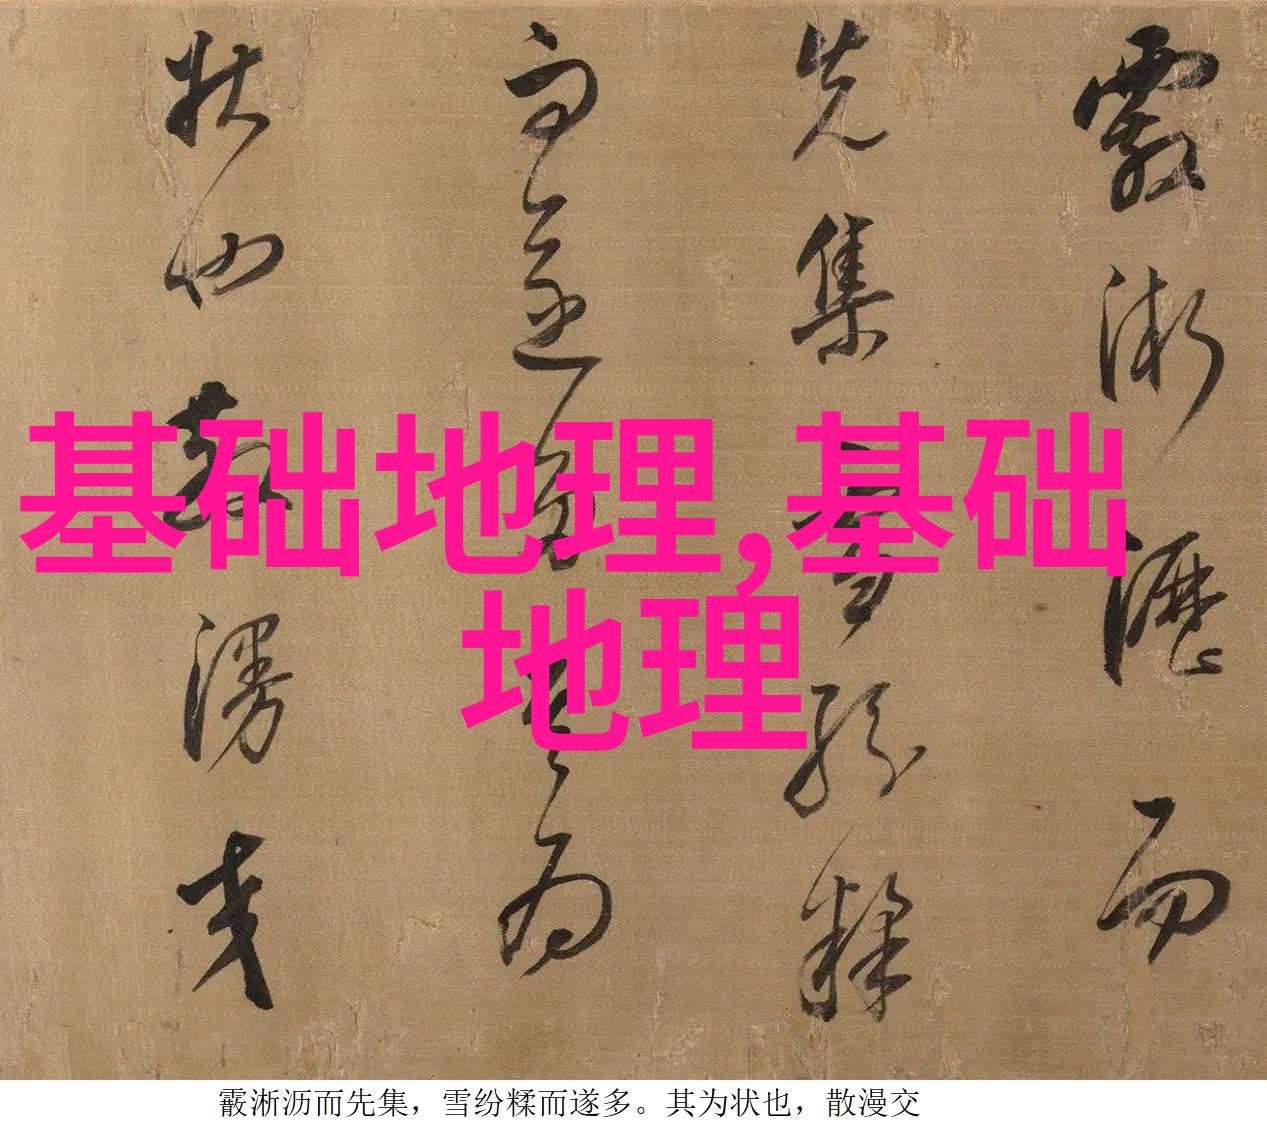 霰淅瀝而
先集雪紛糅
而遂多其為
状也散漫交
基础地理,基础
地理
霰淅沥而先集，雪纷糅而遂多。其为状也，散漫交